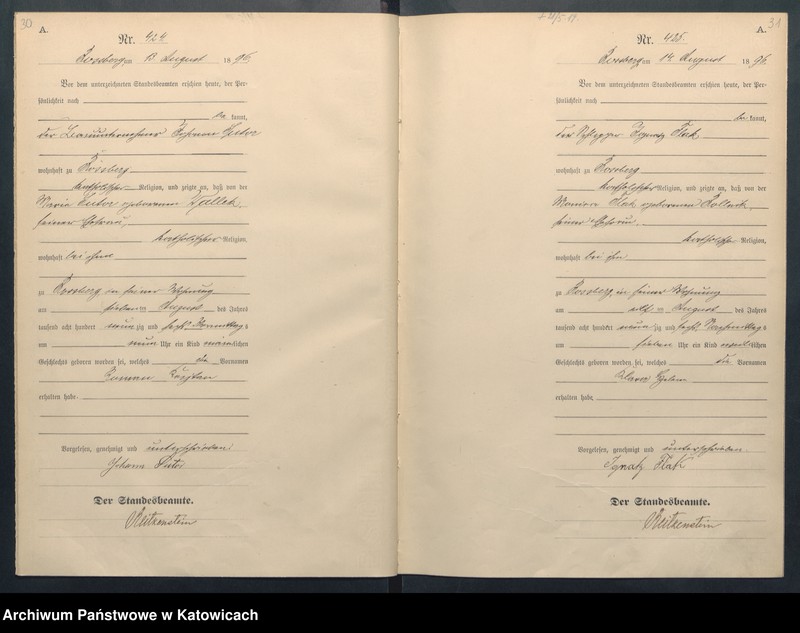 30
A.
Nr. 424
Rossberg am 13 August 1896.
Vor dem unterzeichneten Standesbeamten erschien heute, der Per-
sönlichkeit nach
be kannt,
der Johann
wohnhaft zu Rossberg
katholischer Religion, und zeigte an, daß von der
Maria geborenen
seiner Ehefrau,
katholischer Religion,
wohnhaft bei ihm
zu Rossberg in seiner Wohnung
am sieben ten August des Jahres
tausend acht hundert neun zig und sechs Vormittags
um neun Uhr ein Kind männlichen
Geschlechts geboren worden sei, welches die Vornamen
erhalten habe.
Vorgelesen, genehmigt und unterschrieben.
Johann
Der Standesbeamte.
Reitzenstein
31
A.
Nr. 425.
Rossberg am 14 August 1896.
Vor dem unterzeichneten Standesbeamten erschien heute, der Per-
sönlichkeit nach
be kannt,
der Ignatz Flak
wohnhaft zu Rossberg
katholischer Religion, und zeigte an, daß von der
Flak geborenen
seiner Ehefrau
katholischer Religion,
wohnhaft bei ihm
zu Rossberg, in seiner Wohnung
am elf ten August des Jahres
tausend acht hundert neun zig und sechs Nachmittags
um sieben Uhr ein Kind weiblichen
Geschlechts geboren worden sei, welches die Vornamen
Clara
erhalten habe.
Vorgelesen, genehmigt und unterschrieben.
Ignatz Flak
Der Standesbeamte.
Reitzenstein
Archiwum Państwowe w Katowicach